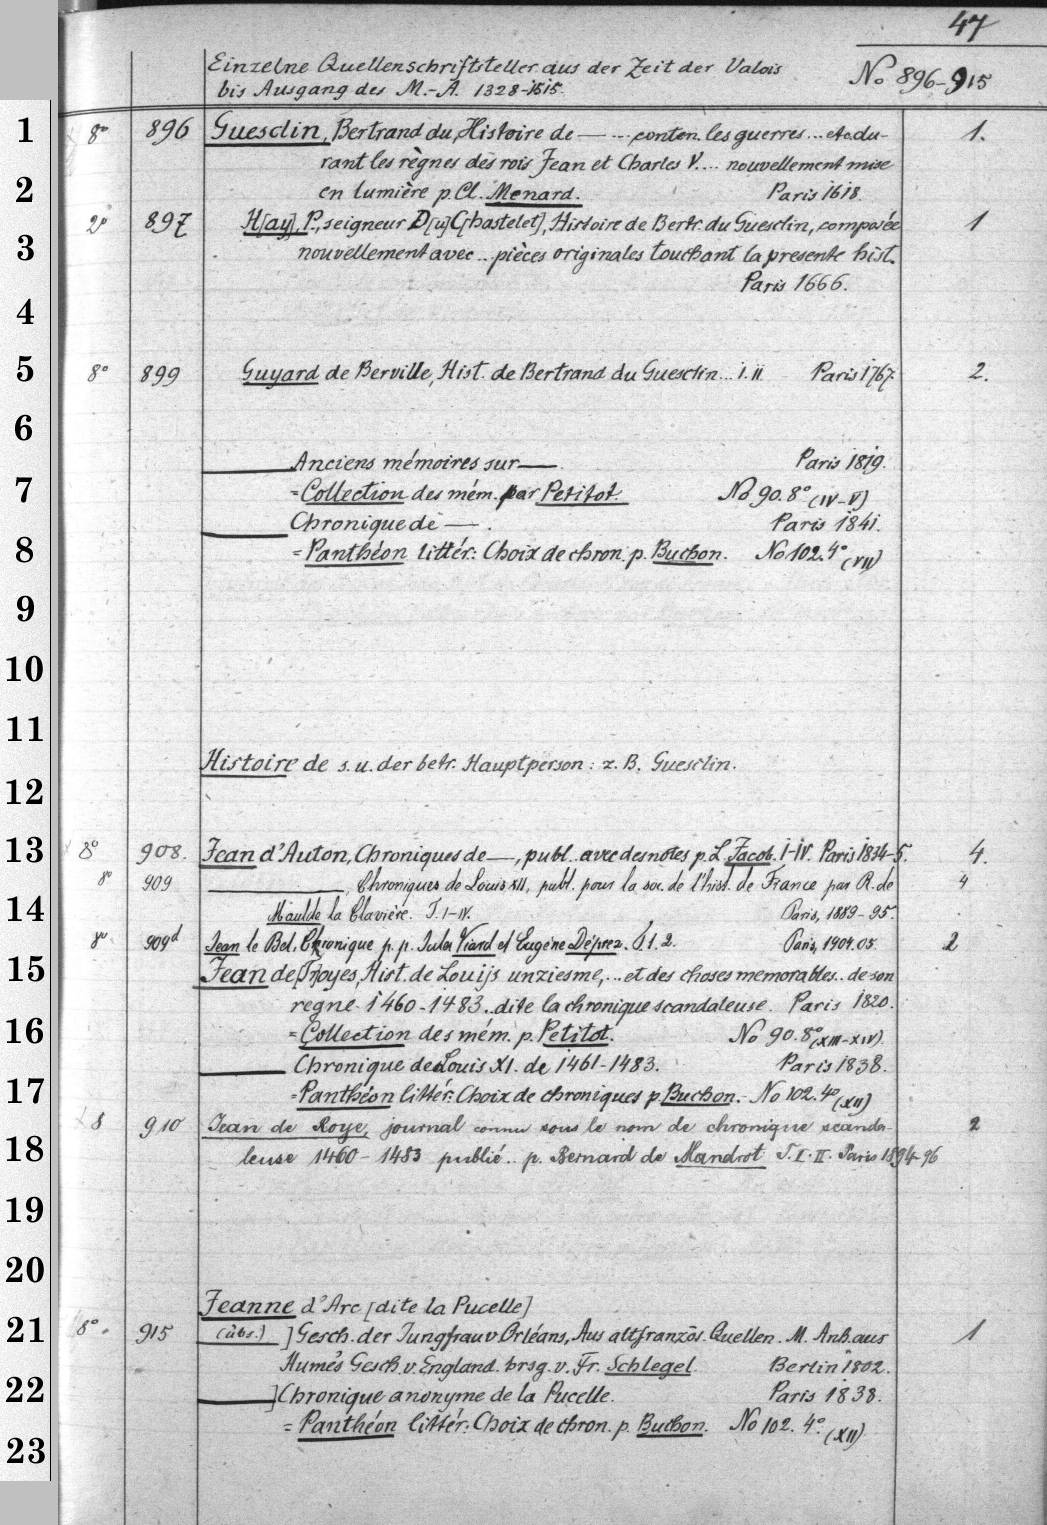 47
Einzelne Quellenschriftsteller aus der Zeit der Valois
bis Ausgang des M.-A. 1328-1515. No 896-915
1 8° 896 Guesclin, Bertrand du, Histoire de — ... conten. les guerres ... etc. du- 1.
rant les règnes des rois Jean et Charles V.... nouvellement mise
2 en lumière p. Cl. Menard. Paris 1618.
2° 897 H[ay], P., seigneur D[u] C[hastelet], Histoire de Bertr. du Guesclin, composée 1
3 nouvellement avec .. pièces originales touchant la presente hist.
Paris 1666.
4
5 8° 899 Guyard de Berville, Hist. de Bertrand du Guesclin... I. II Paris 1767. 2.
6
— Anciens mémoires sur — Paris 1819.
7 = Collection des mém. par Petitot. No 90. 8° (IV-V)
— Chronique de — . Paris 1841.
8 = Panthéon littér.: Choix de chron. p. Buchon. No 102. 4° (VII)
9
10
11
Histoire de s. u. der betr. Hauptperson: z. B. Guesclin.
12
13 8° 908. Jean d'Auton, Chroniques de —, publ.. avec des notes p. L. Jacob. I-IV. Paris 1834-5. 4.
8° 909 —, Chroniques de Louis XII, publ. pour la soc. de l'hist. de France par R. de 4
14 Maulde la Clavière. T. I-IV. Paris, 1889-95.
8° 909d Jean le Bel, Chronique p. p. Jules Viard et Eugène Déprez. T. 1. 2. Paris, 1904.05. 2
15 Jean de Troyes, Hist. de Louijs unziesme,... et des choses memorables.. de son
regne 1460-1483.. dite la chronique scandaleuse. Paris 1820.
16 = Collection des mém. p. Petitot. No 90. 8° (XIII-XIV)
— Chronique de Louis XI. de 1461-1483. Paris 1838.
17 = Panthéon littér. Choix de chroniques p. Buchon. - No 102. 4° (XII)
8 910 Jean de Roye, journal connu sous le nom de chronique scanda- 2
18 leuse 1460-1483 publié.. p. Bernard de Mandrot T. I. II. Paris 1894-96
19
20
Jeanne d'Arc [dite la Pucelle]
21 8°. 915 (übs.) ] Gesch. der Jungfrau v. Orléans, Aus altfranzös. Quellen. M. Anh. aus 1
Hume's Gesch. v. England. hrsg. v. Fr. Schlegel. Berlin 1802.
22 —] Chronique anonyme de la Pucelle. Paris 1838.
= Panthéon littér.: Choix de chron. p. Buchon. No 102. 4°. (XII)
23